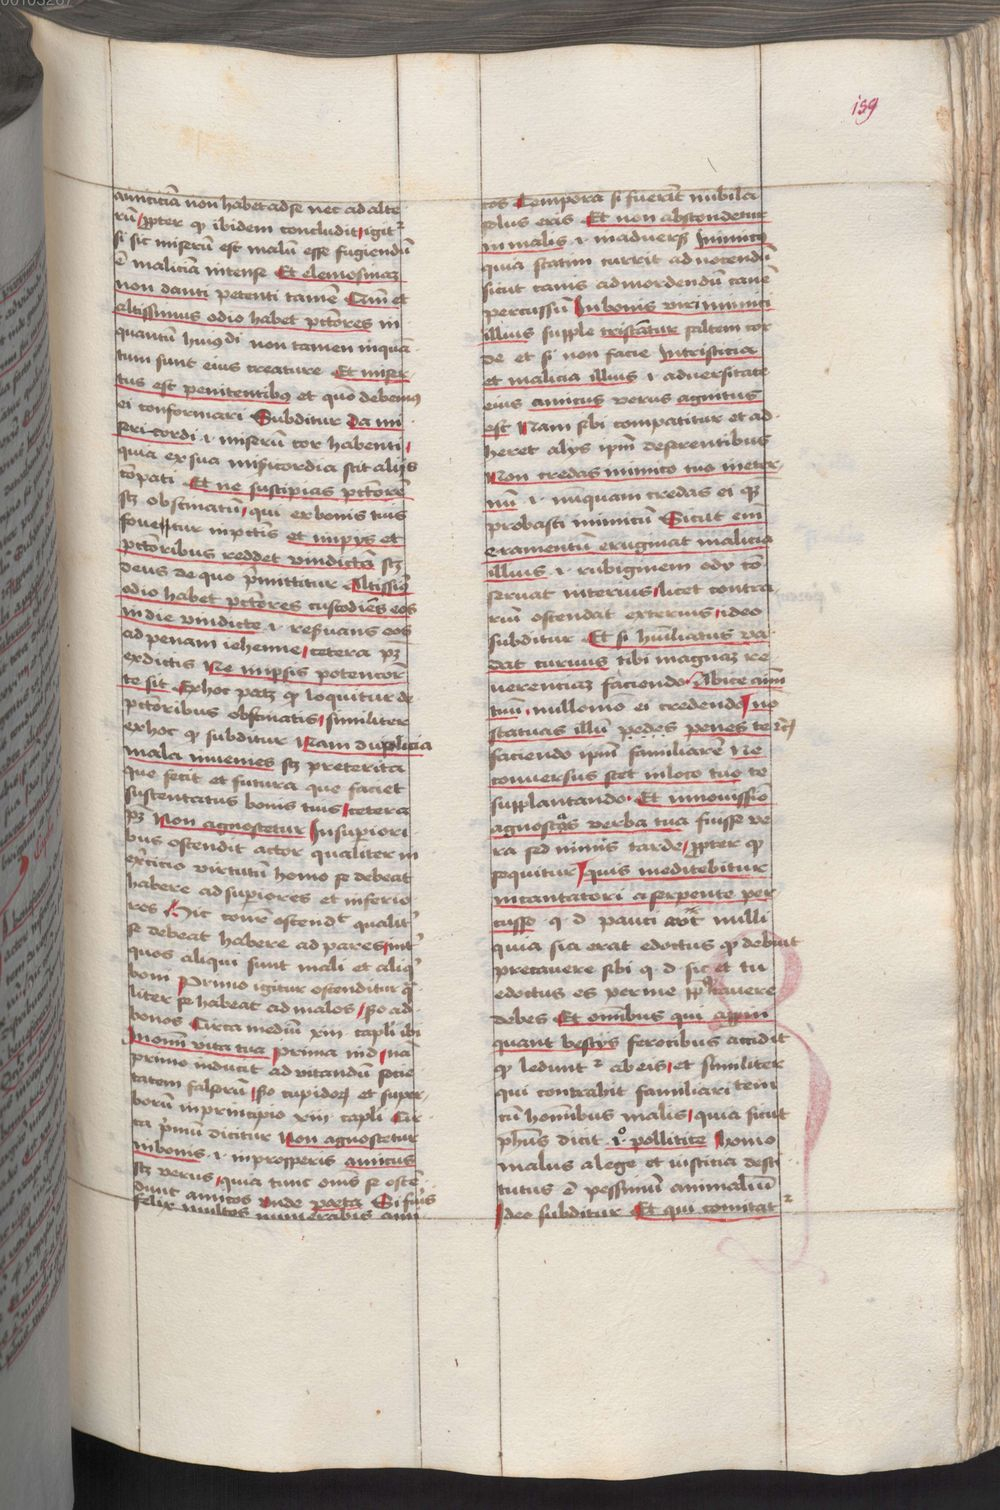 159
amiciciā non habet ad se nec ad alte
rū ꝓpter qꝫ ibidem concludit igit᷑
si sic miserū est malū esse fugiendū
ē maliciam intense Et elemosinaꝫ
non danti petenti tamē Cum et
altissimus odio habet pctōres in
quantū huiꝰdi non tamen inquā
tum sunt eius creature Et miser
tus est penitentibꝰ et quō debemꝰ
ei conformari Subditur Da mi
seri cordi .i. miserū cor habenti
quia ex sua misericordia scit alijs
cōpati Et ne suscipias pctōrē
sꝫ obstinatū qui ex bonis tuis
fouetur in pctīs et impijs et
pctōribus reddet vindictā sꝫ
deus de quo p̄mittitur Altissimꝰ
odio habet pctōres custodiēs eos
in die vindicte .i. reseruans eos
ad penam iehenne cetera pꝫ
ex dictis Ne in ipsis potencior
te sit Ex hoc patꝫ qꝫ loquitur de
pctōribus obstinatis similiter
ex hoc qꝫ subditur Nam duplicia
mala inuenies sꝫ preterita
que fecit et futura que faciet
sustentatus bonis tuis cetera
pꝫ Non agnoscetur In superiori
bus ostendit actor qualiter in
exercicio virtutū homo se debeat
habere ad superiores et inferio
res Hic cōuēr ostendit qualit᷑
se debeat habere ad pares int᷑
quos aliqui sunt mali et aliqͥ
boni Primo igitur ostenditur qͣ
liter se habeat ad malos sc̄do ad
bonos Circa mediū xiii capli ibi
In omni vita tua Prima in ii nā
primo inducit ad vitandū socie
tatem falsorū sc̄do cupidoꝝ et super
borū in principio xiii capli Cir
ca p̄mū dicitur Non agnoscetur
in bonis .i. in prosperis amicus
sꝫ verus quia tunc omēs se osten
dunt amicos vnde poeta Si fueris
felix multos numerabis ami
cos Tempora si fuerīt nubila
solus eris Et non abscondetur
in malis .i. in aduersis Inimicꝰ
quia statim currit ad nocendū
sicut canis ad mordendū canē
percussū In bonis viri inimici
illius supple tristātur saltem cor
de et si non facie In tristicia
et malicia illius .i. aduersitate
eius amicus verus agnitus
est Nam sibi compatitur et ad
heret alijs ipm deserentibus
Non credas inimico tuo in eter
nū .i. nunquam credas ei qꝫ
probasti inimicū Sicut em̄
eramentū eruginat malicia
illius .i. rubiginem odij cō
seruat interius licet contra
riū ostendat exterius ideo
subditur Et si humiliatus va
dat curuus tibi magnaꝫ re
uerenciaꝫ faciendo Abice aīm
tuū nullomō ei credendo no
statuas illū pedes penes te etc̄
faciendo ipm familiarē Ne
conuersus stet in loco tuo te
supplantando Et in nouissīo
agnoscas verba tua fuisse ve
ra sed nimis tarde ꝓpter qꝫ
sequitur quis medebitur
incantatori a serpente per
cusso q d pauci aut nulli
quia sic erat edoctus qꝫ debuit
precauere sibi q d sic et tu
edoctus es per me cauere
debes Et omibus qui appro
quant bestijs ferocibus accidit
qꝫ ledunt᷑ ab eis et similiter
qui contrahit familiaritem
cū hominibus malis quia sicut
phūs dicit .i. pollitice Homo
malus a lege et iusticia desti
tutus ē pessimū animaliū
Ideo subditur Et qui comitat᷑